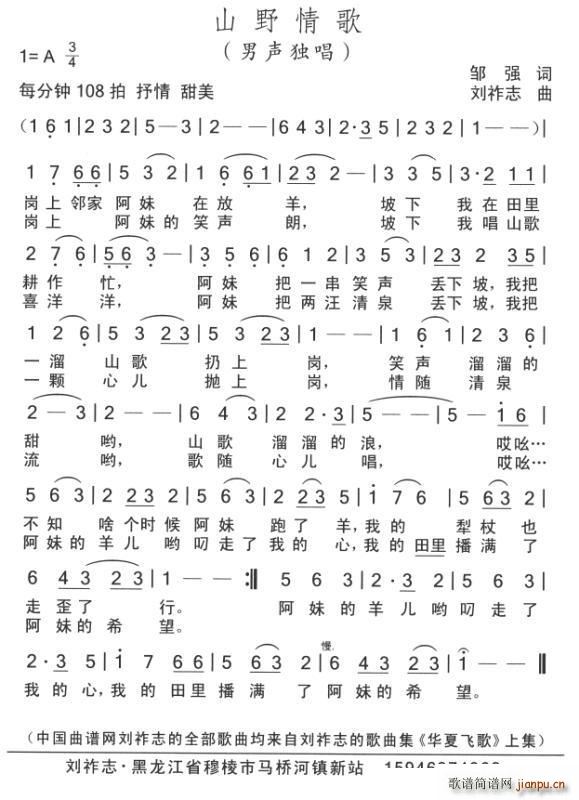 山野情歌
（男声独唱）
1=A 3/4
邹 强 词
每分钟 108 拍 抒情 甜美
刘祚志 曲
（1 6 1 | 2 3 2 | 5 — 3 | 2 — — | 6 4 3 | 2·3 5 | 2 3 2 | 1 — — ）|
1 7 6 6 | 5 3 2 | 1 6 6 1 | 2 — — | 3 3 5 | 3·2 1 1 |
岗上 邻家 阿妹 在放 羊， 坡下 我在田里
岗上 阿妹的 笑声 朗， 坡下 我唱山歌
2 7 6 | 5 6 — | 3 5 6 | 6 1 2 | 3 5 3 | 2 3 2 3 5 |
耕作 忙， 阿妹 把一串笑声 丢下坡，我把
喜洋 洋， 阿妹 把两汪清泉 丢下坡，我把
1 2 6 | 5 3 2 3 | 5 2 3 | 1 — — | 1 6 1 | 5 6 3 |
一溜 山歌 扔上 岗， 笑声 溜溜的
一颗 心儿 抛上 岗， 情随 清泉
2 — 3 | 2 — — | 6 4 3 | 2 2·3 | 5 — — | 5 — 1 6 |
甜 哟， 山歌 溜溜的浪， 哎吆…
流 哟， 歌随 心儿 唱， 哎吆…
5 6 3 | 2 2 3 | 5 6 3 | 2·3 5 | 1 7 6 | 5 6 3 |
不知 啥个时候阿妹 跑了 羊，我的 犁杖也
阿妹的羊儿 哟叨走了我的 心，我的田里播满了
6 4 3 2 3 | 1 — — :‖ 5 6 3 | 2 2 3 | 5 6 3 |
走歪了 行。 阿妹的羊儿哟叨走了
阿妹的希 望。
2·3 5 | 1 7 6 6 | 5 6 3 | 2 6 | 6 2 3 2 3 | 1 — ‖
慢.
我的心，我的田里播满 了阿妹的希 望。
（中国曲谱网刘祚志的全部歌曲均来自刘祚志的歌曲集《华夏飞歌》上集）
刘祚志·黑龙江省穆棱市马桥河镇新站
歌谱简谱网
jianpu.cn